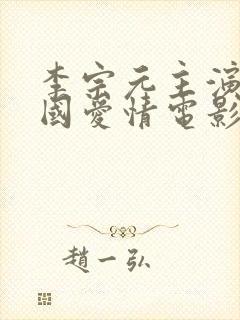 李宗元主演
國愛情電影
趙一弘